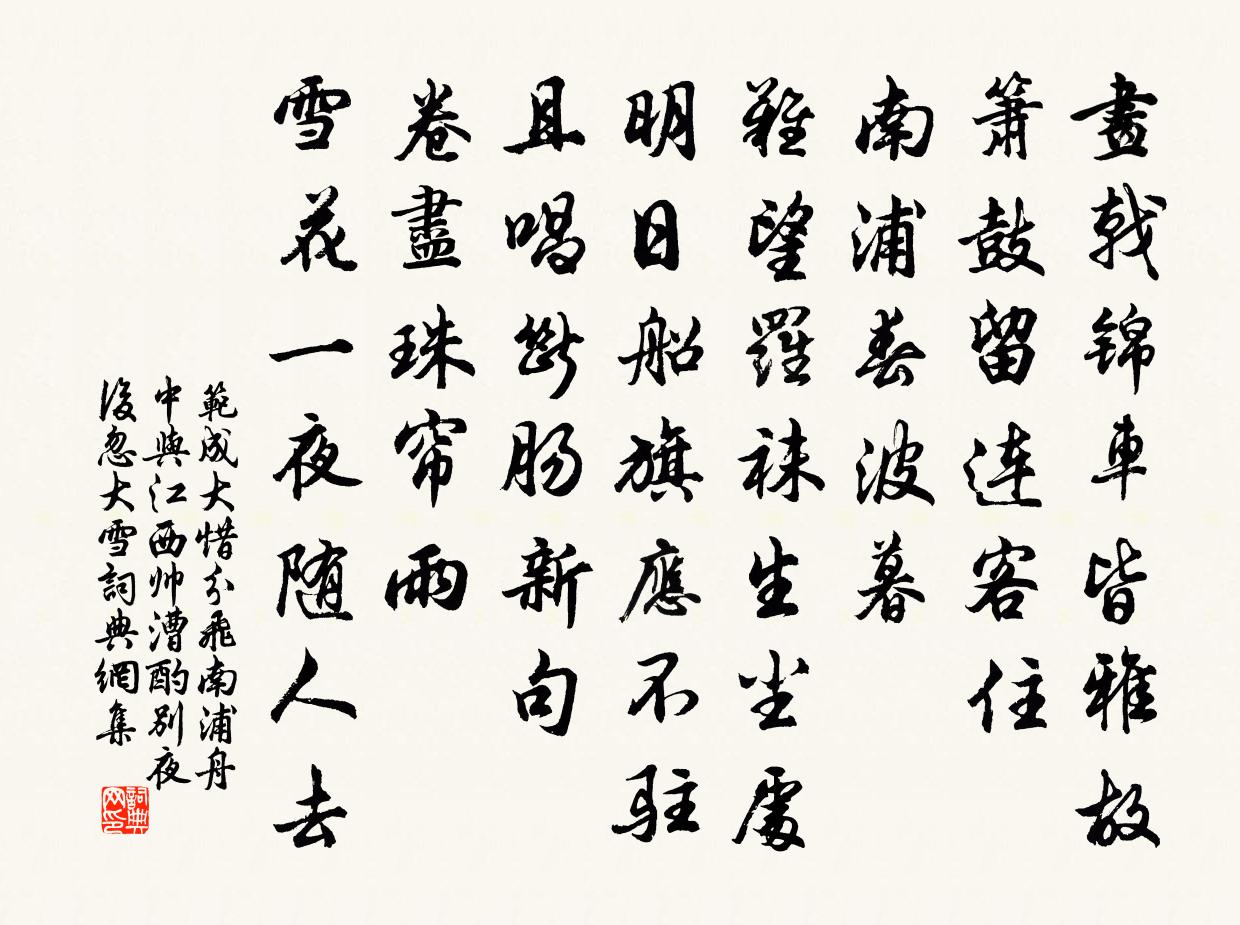 畫戟锦車皆雅故
箫鼓留连客住
南浦春波暮
難望羅袜生尘處
明日船旗應不駐
且唱斷肠新句
卷盡珠帘雨
雪花一夜随人去
範成大惜分飛南浦舟
中與江西帅漕酌别夜
後忽大雪詞典網集
詞典网印